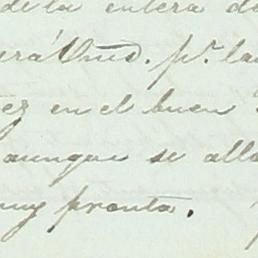 de la entera de
erá Umd. pr. la
ez en el buen
aunque se alla
muy pronta.